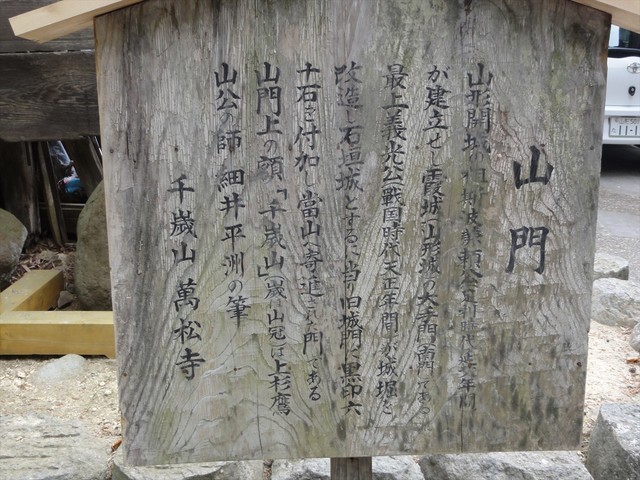 山門
山形開城の祖斯波兼頼公室町時代延文年間
が建立せし霞城(山形城)の大手門(高門)である
最上義光公戦国時代天正年間が城堀を
改造し石垣城とするに当り旧城門に黒印六
千石を付加し當山へ寄進された門である
山門上の額「千歳山」(歳に山冠は上杉鷹
山公の師 細井平洲の筆
千歳山 萬松寺